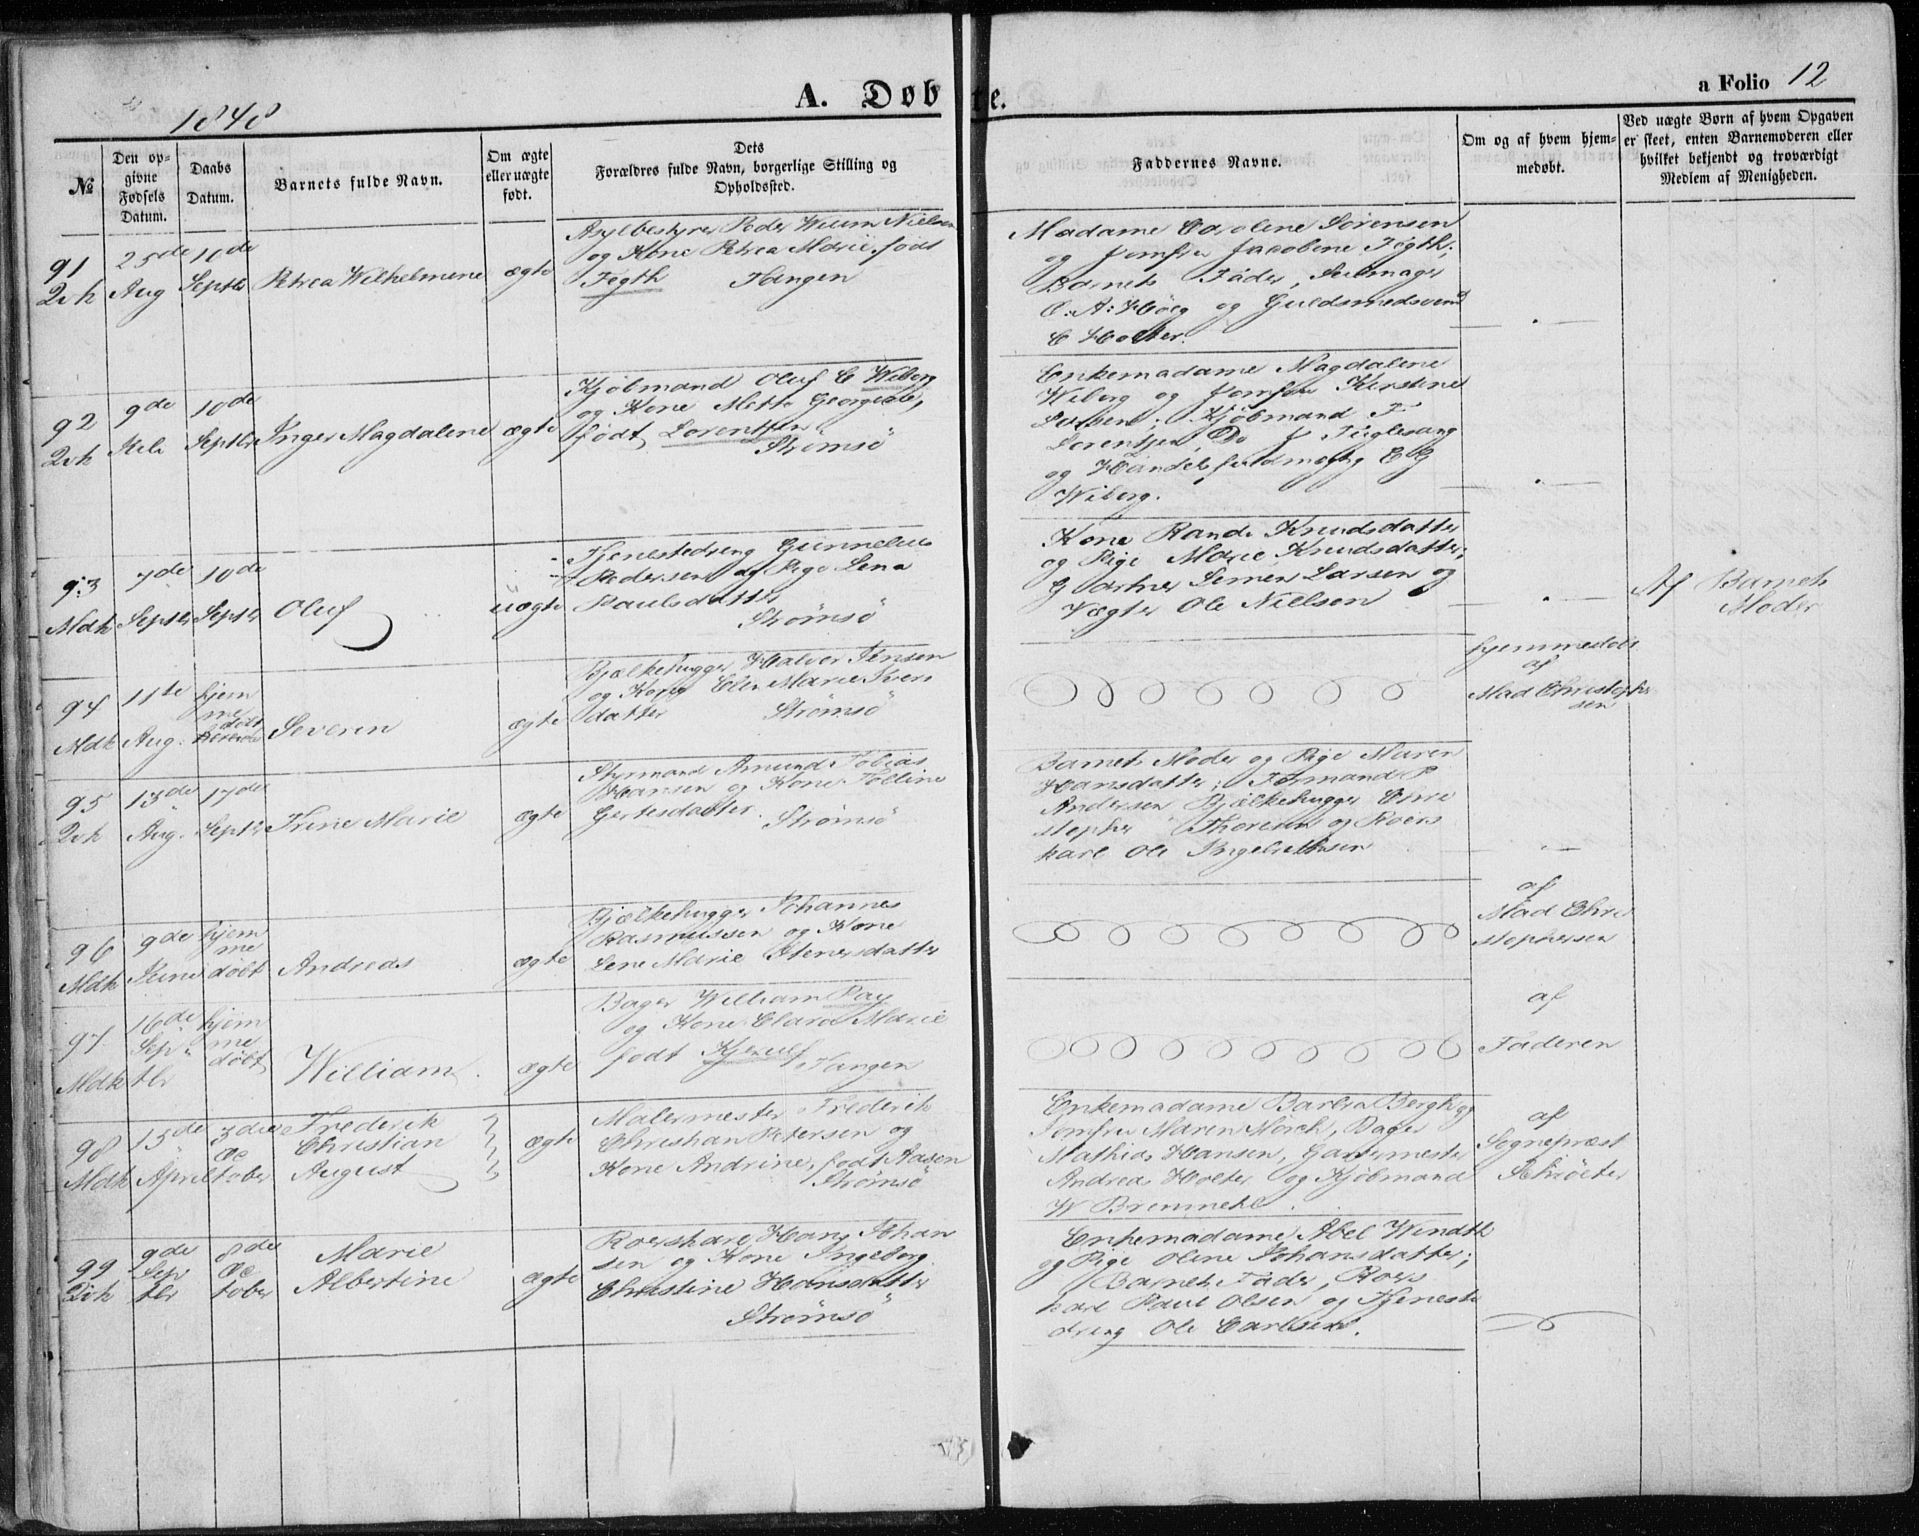 1848
A. Døbte.
a Folio 12
№
Den op-
givne
Fødsels
Datum.
Daabs
Datum.
Barnets fulde Navn.
Om ægte
eller uægte
født.
Dets
Forældres fulde Navn, borgerlige Stilling og
Opholdssted.
Faddernes Navne.
Om og af hvem hjem-
medøbt.
Ved uægte Børn af hvem Opgaven
er skeet, enten Barnemoderen eller
hvilket bekjendt og troværdigt
Medlem af Menigheden.
91
25de
Aug
10de
Septbr
Petrea Wilhelmine
ægte
Asylbestyrer Peder Wium Nielsen
og Kone Petrea Marie født
Fegth Tangen
Madame Caroline Sørensen
og Jomfru Jacobine Fegth;
Barnets Fader, Seilmager
C: A: Høeg og Guldsmedsvend
C Holter.
92
9de
10de
Septbr
Inger Magdalene
ægte
Kjøbmand Oluf C Wiborg
og Kone Mette Georgine,
født Lorentzen
Strømsö
Enkemadame Magdalene
Wiborg og Jomfru Kirstine
Kjøbmand F
Lorentzen, Do J Fuglesang
og Handelsfuldmægtig C G
Wiborg.
93
Mdk
7de
Septbr
10de
Septbr
Oluf
uægte
Tjenestedreng Gunnelius
Pedersen og Pige Lena
Paulsdatter
Strømsö
Kone Randi Knudsdatter
og Pige Marie Knudsdatter;
Gartner Simen Larsen og
Vægter Ole Nielsen
Af Barnets
Moder
94
Mdk
11te
Aug.
hjem
me
døbt
Severin
ægte
Bjælkehugger Halvor Jensen
og Kone Elen Marie Ivers
datter Strømsö
hjemmedøbt
af
Mad Christopher
sen
95
13de
Aug.
17de
Septbr
Trine Marie
ægte
Styrmand Amund Tobias
Hansen og Kone Tolline
Gertsdatter. Strømsö
Barnets Moder og Pige Maren
Hansdatter; Formand P
Andersen Bjælkehugger Chri
stopher Thoresen og Roers
karl Ole Ingebretsen
96
Mdk
9de
Juni
hjem
me
døbt
Andreas
ægte
Bjælkehugger Johannes
Rasmussen og Kone
Lene Marie Stenersdatter
af
Mad Chri
stophersen
97
Mdk
16de
Sep
tbr
hjem
me
døbt
William
ægte
Bager William Pay
og Kone Clara Marie
født Kjerulf
Tangen
af
Faderen
98
Mdk
15de
April
3die
Oc
tober
Frederik
Christian
August
ægte
Malermester Frederik
Christian Petersen og
Kone Andrine, født Aasen
Strømsö
Enkemadame Barbra Bergh og
Jomfru Maren Mörch, Bager
Mathias Hansen, Garvermester
Andreas Holter og Kjøbmand
W Bremmehl.
af
Sognepræst
Schröeter
99
9de
Sep
tbr
8de
Oc
tober
Marie
Albertine
ægte
Roerskarl Hans Johan
sen og Kone Ingeborg
Christine Hansdatter
Strømsö
Enkemadame Abel Windth
og Pige Oline Johansdatter;
Barnets Fader, Roers
karl Paul Olsen og Tjeneste
dreng Ole Carlsen.